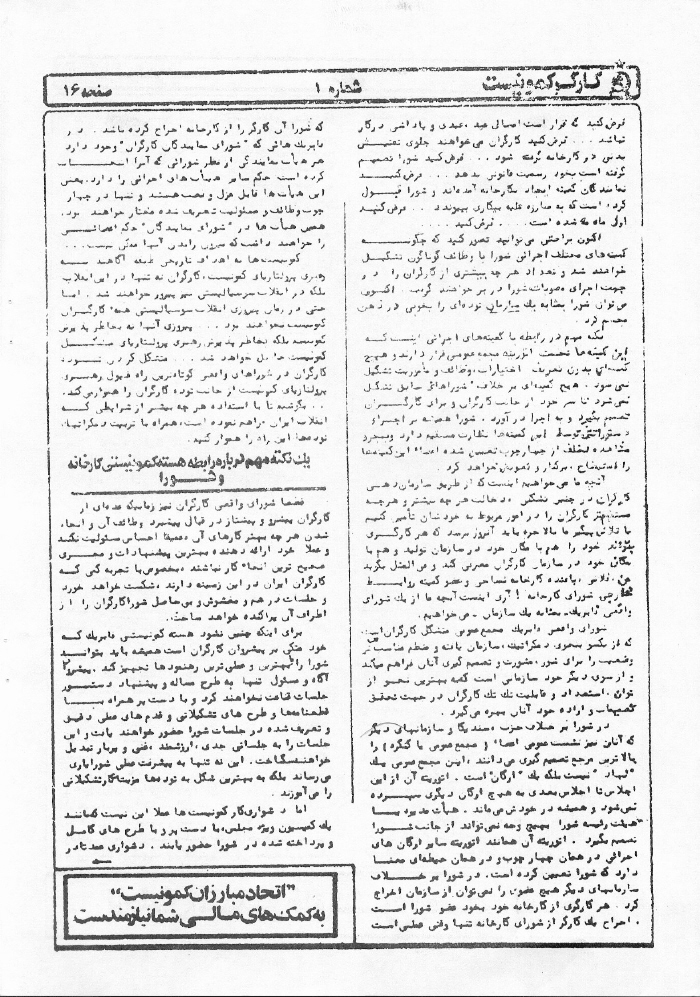 کارگر کمونیست
شماره ۱
صفحه ۱۶
فرض کنید که قرار است امسال عید، عیدی و پاداشی در کار
نباشد ... فرض کنید کارگران می‌خواهند جلوی تفتیش
بدنی در کارخانه گرفته شود ... فرض کنید شورا تصمیم
گرفته است بخود رسمیت قانونی بدهد ... فرض کنید
نمایندگان کمیته ایجاد بکارخانه آمده‌اند و شورا قبول
کرده است که به مبارزه علیه بیکاری بپیوندد ... فرض کنید
اول ماه مه شده است ... فرض کنید ...
اکنون براحتی می‌توانید تصور کنید که چگونه
کمیته‌های مختلف اجرائی شورا با وظائف گوناگون تشکیل
خواهند شد و تعداد هر چه بیشتری از کارگران را در
جهت اجرای مصوبات شورا در بر خواهند گرفت. اکنون
می‌توان شورا بمثابه یک سازمان توده‌ای را بخوبی در ذهن
مجسم کرد.
نکته مهم در رابطه با کمیته‌های اجرائی اینست که
این کمیته‌ها تحت اتوریته مجمع عمومی قرار دارند و هیچ
کمیته‌ای بدون تعریف اختیارات، وظائف و مأموریت تشکیل
نمی‌شود. هیچ کمیته‌ای بر خلاف "شوراهای سابق" تشکیل
نمی‌شود تا سر خود از جانب کارگران و برای کارگران
تصمیم بگیرد و به اجرا در آورد. شورا همیشه بر اجراء
دستوراتش توسط این کمیته‌ها نظارت مستقیم دارد و بمجرد
مشاهده تخلف از چهارچوب تعیین شده اعضاء این کمیته‌ها
را استیضاح، برکنار و تعویض خواهد کرد.
آنچه ما می‌خواهیم اینست که از طریق سازمان دهی
کارگران در چنین تشکلی، دخالت هر چه بیشتر و هر چه
مستقیمتر کارگران را در امور مربوط به خودشان تأمین کنیم
با تلاش پیگیر ما بالاخره باید آنروز برسد که هر کارگری
بتواند خود را هم با مکان خود در سازمان تولید و هم با
مکان خود در سازمان کارگران معرفی کند و فی‌المثل بگوید
من، فلانی، بافنده کارخانه نساجی و عضو کمیته روابط
خارجی شورای کارخانه! آری اینست آنچه ما از یک شورای
واقعی فابریک، بمثابه یک سازمان، می‌خواهیم.
شورای واقعی فابریک مجمع عمومی متشکل کارگران است
که از یکسو بنحوی دمکراتیک، سازمان یافته و منظم مناسب‌ترین
وضعیت را برای شور، مشورت و تصمیم گیری آنان فراهم میکند
و از سوی دیگر خود سازمانی است که به بهترین نحو از
توان، استعداد و قابلیت تک تک کارگران در جهت تحقق
تصمیمات و اراده خود آنان بهره می‌گیرد.
در شورا بر خلاف حزب، سندیکا و سازمانهای دیگر
که آنان نیز نشست عمومی اعضاء (مجمع عمومی یا کنگره) را
بالاترین مرجع تصمیم گیری می‌دانند، این مجمع عمومی یک
"نهاد" نیست بلکه یک "ارگان" است. اتوریته آن از این
اجلاس تا اجلاس بعدی به هیچ ارگان دیگری سپرده
نمی‌شود و همیشه در خودش می‌ماند. هیأت مدیره یا
هیئت رئیسه شورا بهیچ وجه نمی‌تواند از جانب شورا
تصمیم بگیرد. اتوریته آن همانند اتوریته سایر ارگان های
اجرائی در همان چهار چوب و در همان حیطه‌ای معنا
دارد که شورا تعیین کرده است. در شورا بر خلاف
سازمانهای دیگر هیچ عضوی را نمی‌توان از سازمان اخراج
کرد. هر کارگری از کارخانه خود بخود عضو شورا است
. اخراج یک کارگر از شورای کارخانه تنها وقتی عملی است
که شورا آن کارگر را از کارخانه اخراج کرده باشد. در
فابریک هائی که "شورای نمایندگان کارگران" وجود دارد
هر هیأت نمایندگی از نظر شورائی که آنرا انتخاب
کرده است حکم سایر هیأت های اجرائی را دارد. یعنی
این هیأت‌ها قابل عزل و نصب هستند و تنها در چهار
چوب وظائف و مسئولیت تعریف شده مختار خواهند بود.
همین هیأت‌ها در "شورای نمایندگان" حکم اعضائی
را خواهند داشت که بیرون راندن آنها عملی نیست...
کمونیست‌ها به اهداف تاریخی طبقه آگاهند. به
رهبری پرولتاریای کمونیست، کارگران نه تنها در این انقلاب
بلکه در انقلاب سوسیالیستی نیز پیروز خواهند شد. اما
حتی در زمان پیروزی انقلاب سوسیالیستی همه کارگران
کمونیست نخواهند بود ... پیروزی آنها نه بخاطر پذیرش
کمونیسم بلکه بخاطر پذیرش رهبری پرولتاریای متشکل
کمونیست حاصل خواهد شد ... متشکل کردن توده
کارگران در شوراهای واقعی کوتاهترین راه قبول رهبری
پرولتاریای کمونیست از جانب توده کارگران را هموار می‌کند.
.. بکوشیم تا با استفاده هر چه بیشتر از شرایطی که
انقلاب ایران فراهم نموده است، همراه با تربیت دمکراتیک
توده‌ها این راه را هموار کنیم.
یک نکته مهم درباره رابطه هسته کمونیستی کارخانه
و شورا
قطعا شورای واقعی کارگران نیز زمانیکه عده‌ای از
کارگران پیشرو و پیشتاز در قبال پیشبرد وظائف آن و انجام
شدن هر چه بهتر کارهای آن عمیقا احساس مسئولیت نکنند
و عملا خود ارائه دهنده بهترین پیشنهادات و مجری
صحیح ترین "انجام" کار نباشند، بخصوص با تجربه کمی که
کارگران ایران در این زمینه دارند، شکست خواهد خورد
و جلسات در هم و مغشوش و بی‌حاصل شورا کارگران را از
اطراف آن پراکنده خواهد ساخت.
برای اینکه چنین نشود هسته کمونیستی فابریک که
خود متکی بر پیشروان کارگران است همیشه باید بتواند
شورا را با بهترین و عملی‌ترین رهنمودها تجهیز کند. پیشروان
آگاه و مسئول تنها به طرح مسأله و پیشنهاد دستور
جلسات قناعت نخواهند کرد و با دست پر همراه با
قطعنامه‌ها و طرح های تشکیلاتی و قدم های عملی دقیق
و تعریف شده در جلسات شورا حضور خواهند یافت و این
جلسات را به جلساتی جدی، ارزشمند، غنی و پربار تبدیل
خواهند ساخت. این نه تنها به پیشرفت عملی شورا یاری
می رساند بلکه به بهترین شکل به توده‌ها مزیت کار تشکیلاتی
را می‌آموزند.
اما دشواری کار کمونیست ها عملا این نیست که مانند
یک کمیسیون ویژه مجلس، با دست پر و با طرح های کامل
و پرداخته شده در شورا حضور یابند. دشواری عمدتا در
"اتحاد مبارزان کمونیست"
به کمک های مالی شما نیازمند است